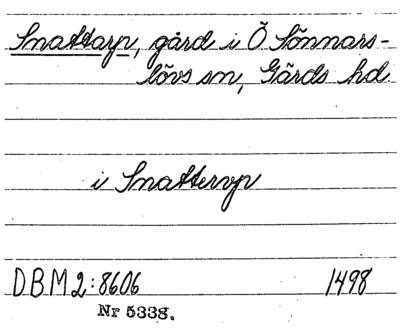 Snattarp, gård i Ö Sönnars-
lövs sn, Gärds hd
i Snatterup
D.B.M 2:8606 1498
Nr 5338.